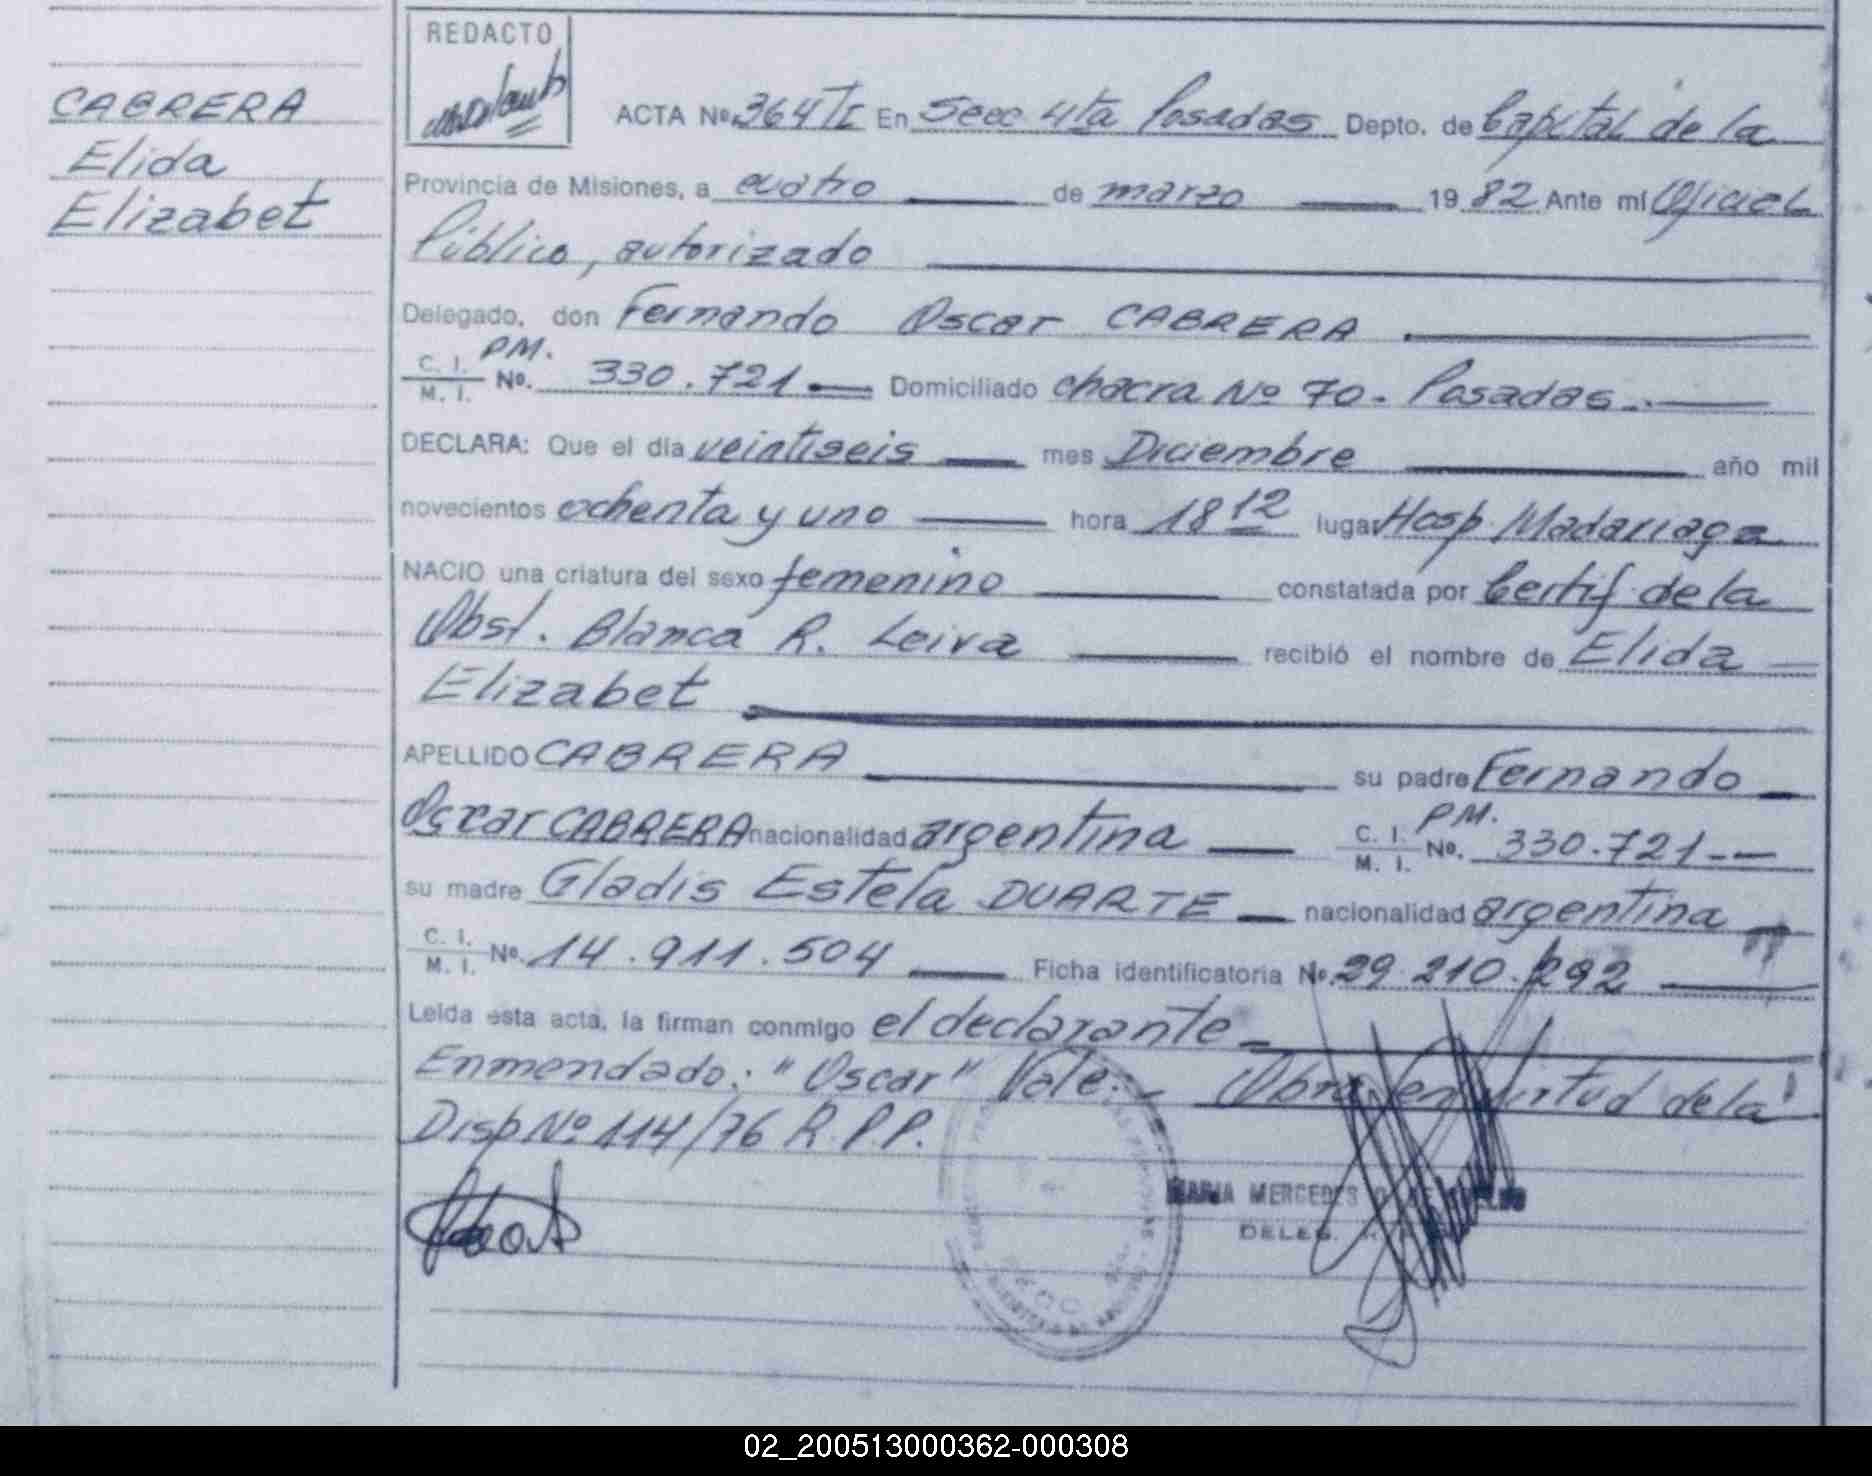 REDACTO
CABRERA
Elida
Elizabet
ACTA No. 364 TI En Secc 4ta Posadas Depto. de Capital de la
Provincia de Misiones, a cuatro de marzo 19 82 Ante mí Oficial
Público, autorizado
Delegado, don Fernando Oscar CABRERA
C. I. PM.
M. I. No. 330.721 Domiciliado chacra No 70 - Posadas
DECLARA: Que el día veintiseis mes Diciembre año mil
novecientos ochenta y uno hora 18 12 lugar Hosp. Madariaga
NACIO una criatura del sexo femenino constatada por Certif de la
Obst. Blanca R. Leiva recibió el nombre de Elida
Elizabet
APELLIDO CABRERA su padre Fernando
Oscar CABRERA nacionalidad argentina C. I. PM. M. I. No. 330.721
su madre Gladis Estela DUARTE nacionalidad argentina
C. I. M. I. No. 14.911.504 Ficha identificatoria No. 29.210.292
Leída esta acta, la firman conmigo el declarante
Enmendado: "Oscar" Vale: Obra en virtud de la
Disp No 114/76 R.P.P.
MARIA MERCEDES
DELEG.
02_200513000362-000308